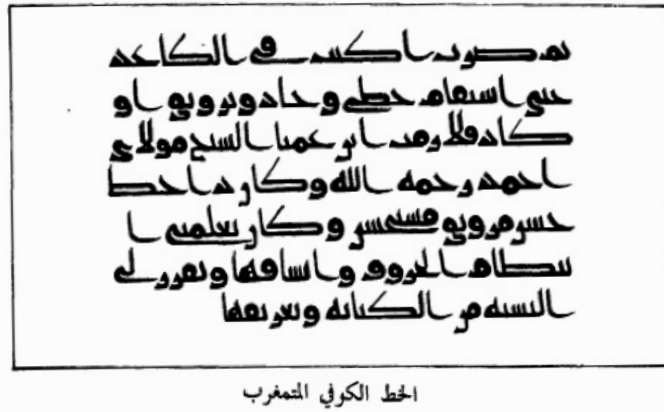 ثم صرت اكتب في الكاغد
حتى استقام خطي وجاد ورونق او
كاد فلازمت ابن عمنا الشيخ مولاي
احمد رحمه الله وكان ذا خط
حسن مرونق مستحسن وكان يعلمني ا
نتظام الحروف واتساقها ويقرر لي
النسبة من الكتابة وتعريفها
الخط الكوفي المتمغرب